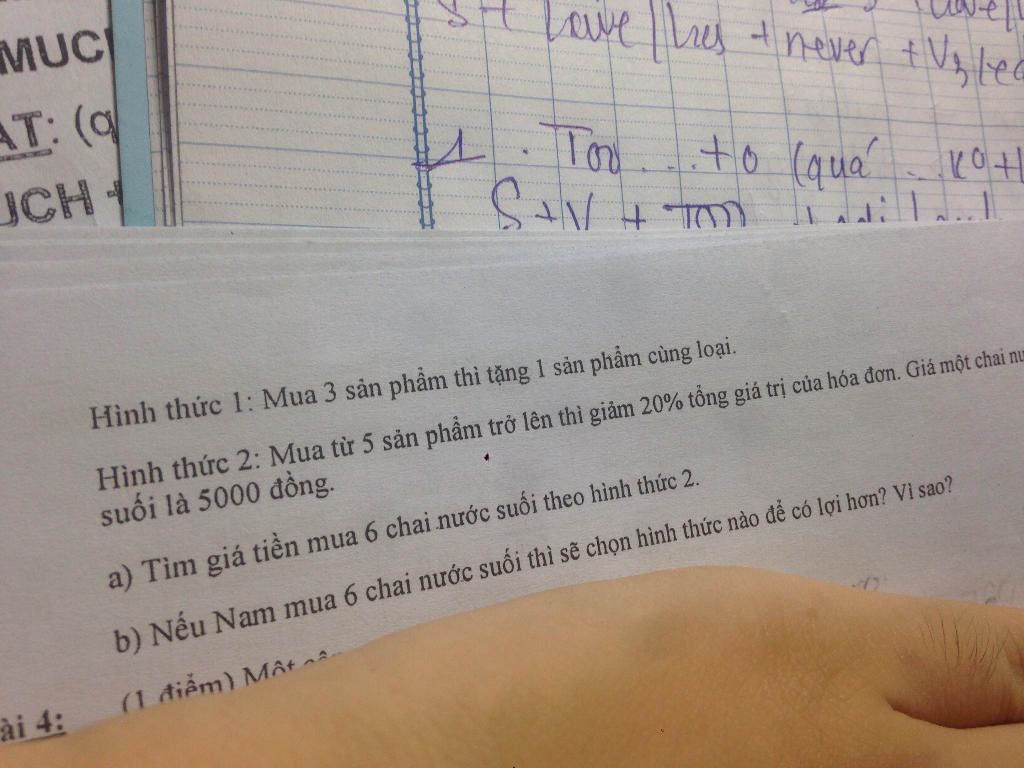 MUCH
AT: (q
UCH +
S + have / has + never + V3/ed
1. Too ... to (quá ... ko
S + V + Too
Hình thức 1: Mua 3 sản phẩm thì tặng 1 sản phẩm cùng loại.
Hình thức 2: Mua từ 5 sản phẩm trở lên thì giảm 20% tổng giá trị của hóa đơn. Giá một chai
suối là 5000 đồng.
a) Tìm giá tiền mua 6 chai nước suối theo hình thức 2.
b) Nếu Nam mua 6 chai nước suối thì sẽ chọn hình thức nào để có lợi hơn? Vì sao?
ài 4: (1 điểm) Một